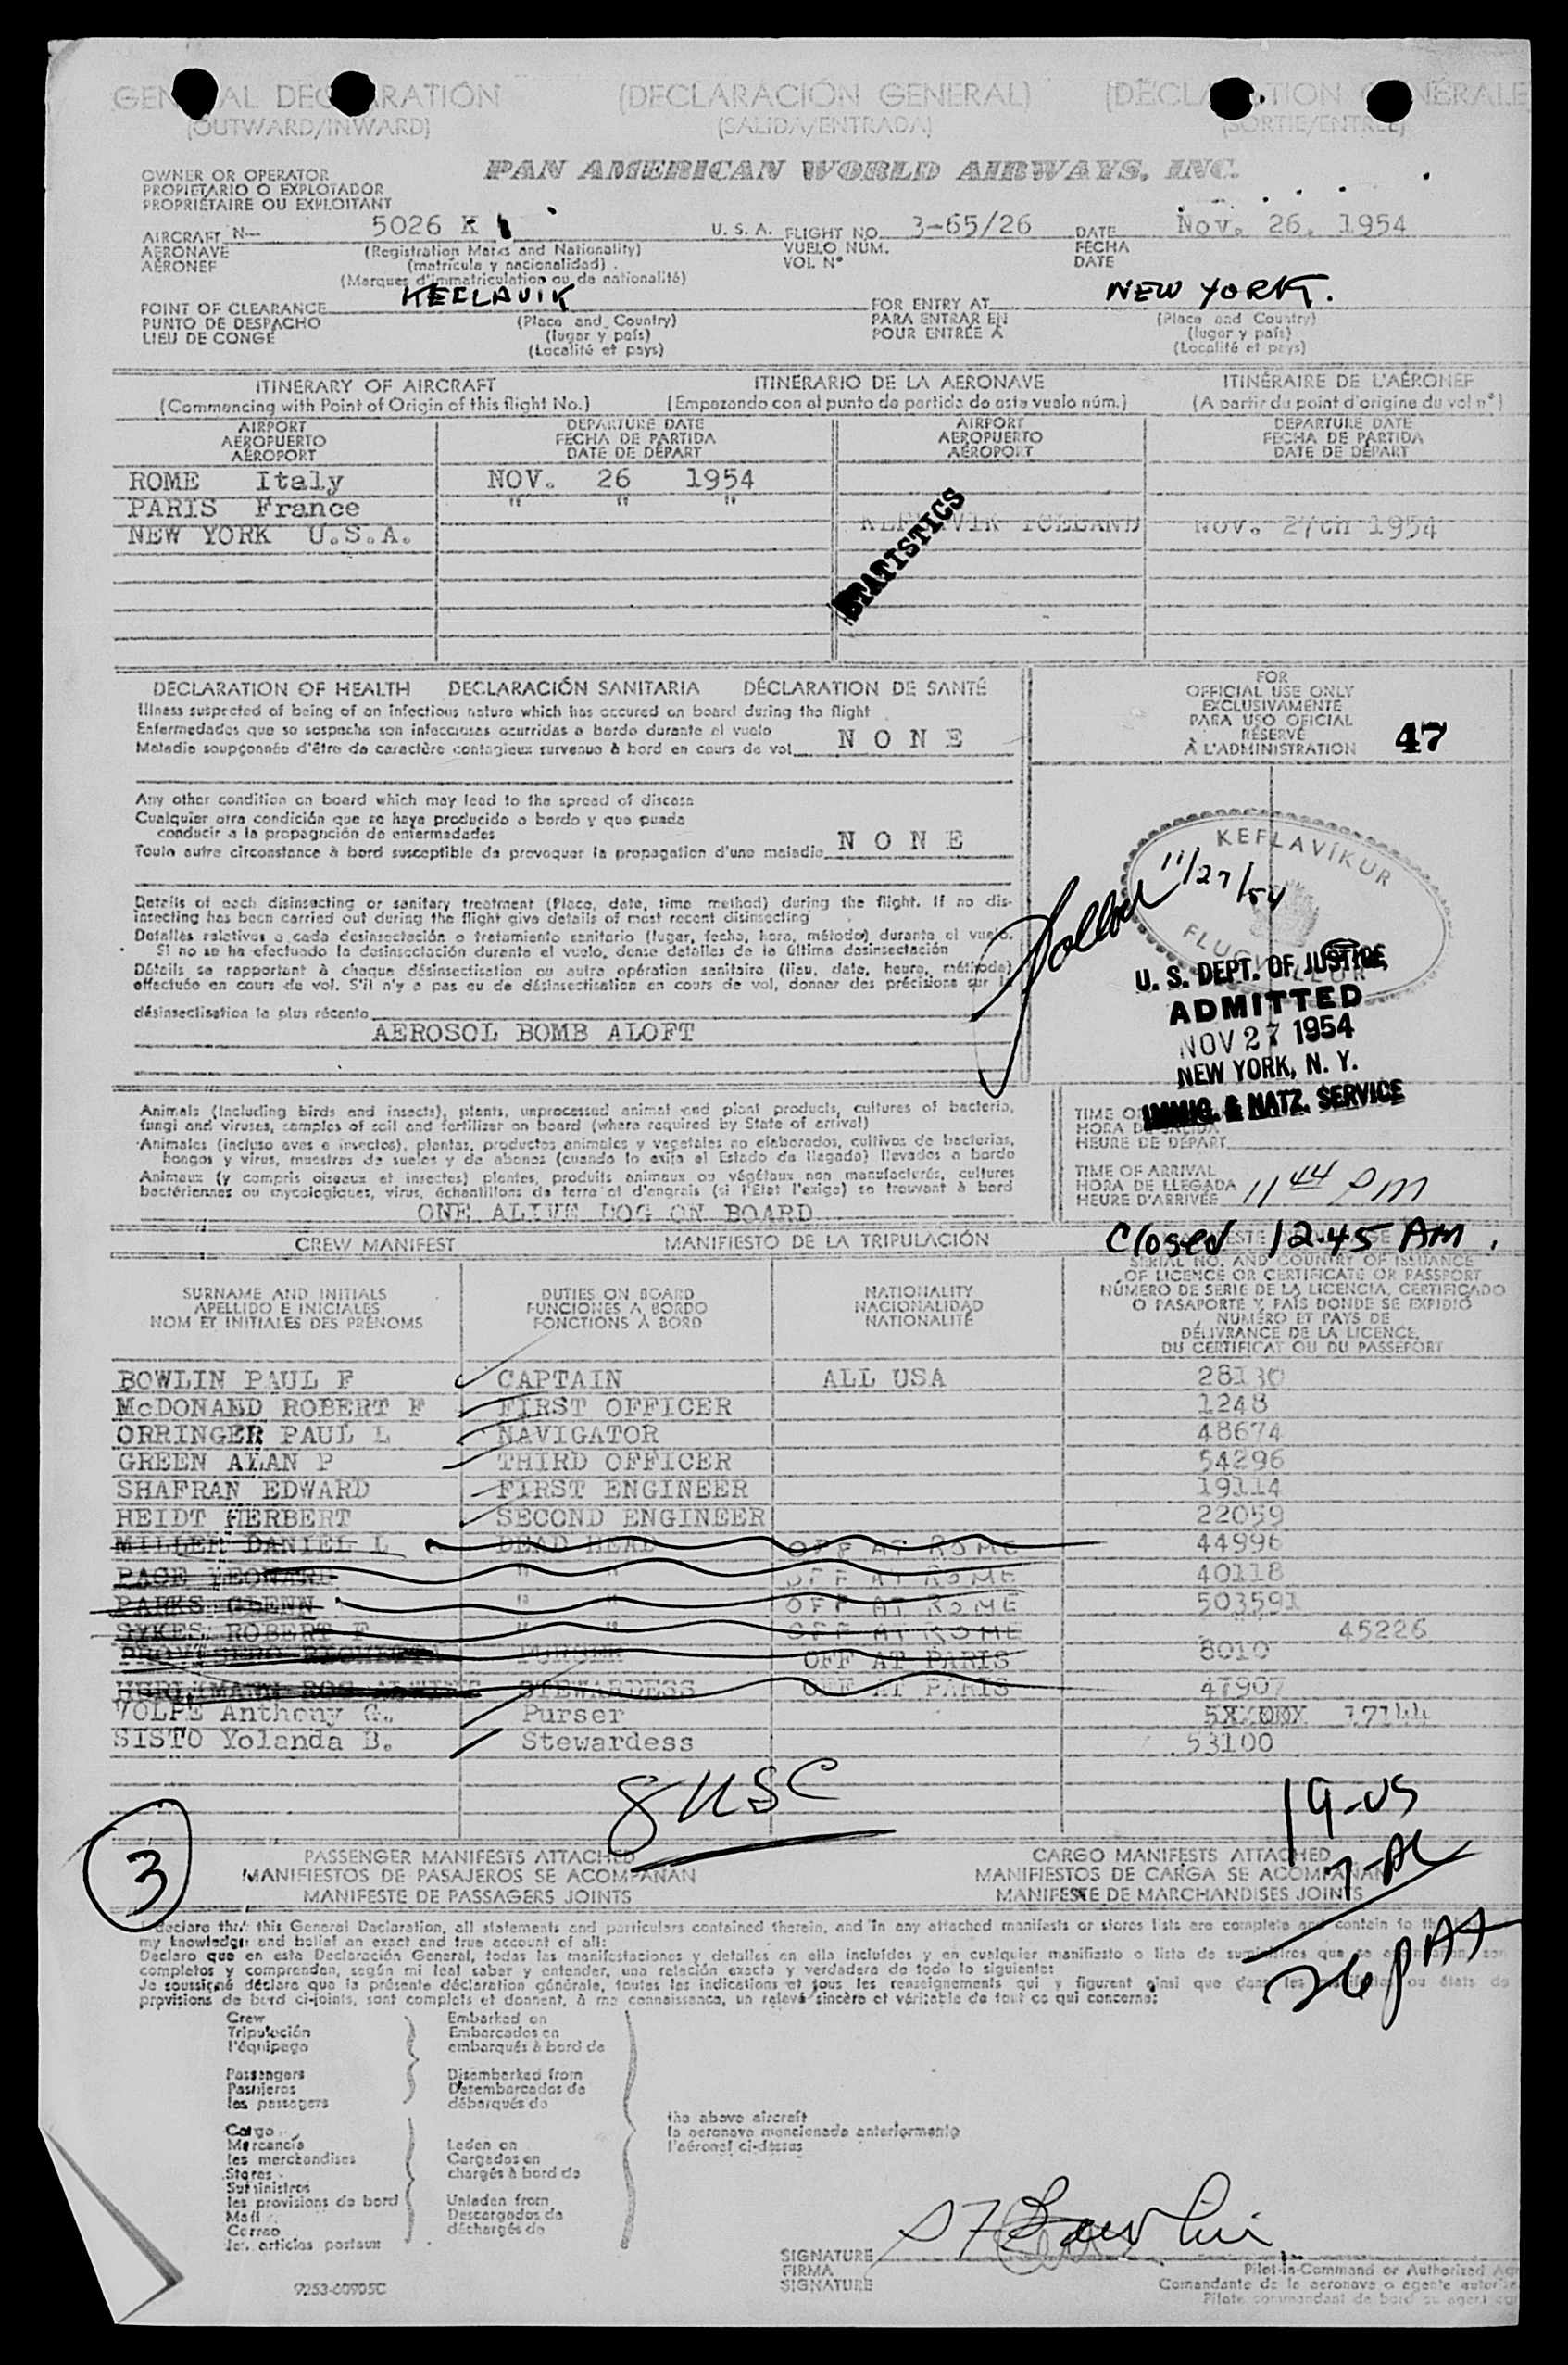 GENERAL DECLARATION (DECLARACIÓN GENERAL) (DÉCLARATION GÉNÉRALE
(OUTWARD/INWARD) (SALIDA/ENTRADA) (SORTIE/ENTRÉE)
OWNER OR OPERATOR
PROPIETARIO O EXPLOTADOR
PROPRIÉTAIRE OU EXPLOITANT
PAN AMERICAN WORLD AIRWAYS, INC.
AIRCRAFT N— 5026 K U. S. A. FLIGHT NO. 3-65/26 DATE Nov. 26, 1954
AERONAVE (Registration Marks and Nationality) VUELO NÚM. FECHA
AÉRONEF (matrícula y nacionalidad) VOL N° DATE
(Marques d'immatriculation ou de nationalité)
POINT OF CLEARANCE KEFLAVIK FOR ENTRY AT NEW YORK.
PUNTO DE DESPACHO (Place and Country) PARA ENTRAR EN (Place and Country)
LIEU DE CONGÉ (lugar y país) POUR ENTRÉE À (lugar y país)
(Localité et pays) (Localité et pays)
ITINERARY OF AIRCRAFT ITINERARIO DE LA AERONAVE ITINÉRAIRE DE L'AÉRONEF
(Commencing with Point of Origin of this flight No.) (Empezando con el punto de partida de este vuelo núm.) (A partir du point d'origine du vol n°)
AIRPORT DEPARTURE DATE AIRPORT DEPARTURE DATE
AEROPUERTO FECHA DE PARTIDA AEROPUERTO FECHA DE PARTIDA
AÉROPORT DATE DE DÉPART AÉROPORT DATE DE DÉPART
ROME Italy NOV. 26 1954
PARIS France " " "
NEW YORK U.S.A. KEFLAVIK ICELAND NOV. 27th 1954
STATISTICS
DECLARATION OF HEALTH DECLARACIÓN SANITARIA DÉCLARATION DE SANTÉ
Illness suspected of being of an infectious nature which has occured on board during the flight
Enfermedades que se sospecha son infecciosas ocurridas a bordo durante el vuelo
Maladie soupçonnée d'être de caractère contagieux survenue à bord en cours de vol NONE
FOR
OFFICIAL USE ONLY
EXCLUSIVAMENTE
PARA USO OFICIAL
RÉSERVÉ
À L'ADMINISTRATION 47
Any other condition on board which may lead to the spread of disease
Cualquier otra condición que se haya producido a bordo y que pueda
conducir a la propagación de enfermedades
Toute autre circonstance à bord susceptible de provoquer la propagation d'une maladie NONE
Details of each disinsecting or sanitary treatment (Place, date, time method) during the flight. If no dis-
insecting has been carried out during the flight give details of most recent disinsecting
Detalles relativos a cada desinsectación o tratamiento sanitario (lugar, fecha, hora, método) durante el vuelo.
Si no se ha efectuado la desinsectación durante el vuelo, dense detalles de la última desinsectación
Détails se rapportant à chaque désinsectisation ou autre opération sanitaire (lieu, date, heure, méthode)
effectuée en cours de vol. S'il n'y a pas eu de désinsectisation en cours de vol, donner des précisions sur la
désinsectisation la plus récente
AEROSOL BOMB ALOFT
KEFLAVÍKUR
11/27/54
U. S. DEPT. OF JUSTICE
ADMITTED
NOV 27 1954
NEW YORK, N. Y.
IMMIG. & NATZ. SERVICE
Animals (including birds and insects), plants, unprocessed animal and plant products, cultures of bacteria,
fungi and viruses, samples of soil and fertilizer on board (where required by State of arrival)
Animales (incluso aves e insectos), plantas, productos animales y vegetales no elaborados, cultivos de bacterias,
hongos y virus, muestras de suelos y de abonos (cuando lo exija el Estado de llegada) llevados a bordo
Animaux (y compris oiseaux et insectes) plantes, produits animaux ou végétaux non manufacturés, cultures
bactériennes ou mycologiques, virus, échantillons de terre et d'engrais (si l'État l'exige) se trouvant à bord
ONE ALIVE DOG ON BOARD
HEURE DE DÉPART
TIME OF ARRIVAL
HORA DE LLEGADA
HEURE D'ARRIVÉE 11 44 PM
Closed 12.45 AM.
CREW MANIFEST MANIFIESTO DE LA TRIPULACIÓN
SURNAME AND INITIALS DUTIES ON BOARD NATIONALITY SERIAL NO. AND COUNTRY OF ISSUANCE
APELLIDO E INICIALES FUNCIONES A BORDO NACIONALIDAD OF LICENCE OR CERTIFICATE OR PASSPORT
NOM ET INITIALES DES PRÉNOMS FONCTIONS À BORD NATIONALITÉ NÚMERO DE SERIE DE LA LICENCIA, CERTIFICADO
O PASAPORTE Y PAÍS DONDE SE EXPIDIÓ
NUMÉRO ET PAYS DE
DÉLIVRANCE DE LA LICENCE,
DU CERTIFICAT OU DU PASSEPORT
BOWLIN PAUL F CAPTAIN ALL USA 28130
McDONALD ROBERT F FIRST OFFICER 1248
ORRINGER PAUL L NAVIGATOR 48674
GREEN ALAN P THIRD OFFICER 54296
SHAFRAN EDWARD FIRST ENGINEER 19114
HEIDT HERBERT SECOND ENGINEER 22059
MILLER DANIEL L DEAD HEAD OFF AT ROME 44996
PAGE LEONARD " " OFF AT ROME 40118
PARKS GLENN " " OFF AT ROME 503591
SYKES ROBERT F " " OFF AT ROME 45226
PURSER OFF AT PARIS 8010
STEWARDESS OFF AT PARIS 47907
VOLPE Anthony G. Purser 17144
SISTO Yolanda B. Stewardess 53100
8 USC
19-US
7-AL
26 PAX
3
PASSENGER MANIFESTS ATTACHED CARGO MANIFESTS ATTACHED
MANIFIESTOS DE PASAJEROS SE ACOMPAÑAN MANIFIESTOS DE CARGA SE ACOMPAÑAN
MANIFESTE DE PASSAGERS JOINTS MANIFESTE DE MARCHANDISES JOINTS
declare that this General Declaration, all statements and particulars contained therein, and in any attached manifests or stores lists are complete and contain to the
my knowledge and belief an exact and true account of all:
Declaro que en esta Declaración General, todas las manifestaciones y detalles en ella incluídos y en cualquier manifiesto o lista de suministros que se acompañan, son
completos y comprenden, según mi leal saber y entender, una relación exacta y verdadera de todo lo siguiente:
Je soussigné déclare que la présente déclaration générale, toutes les indications et tous les renseignements qui y figurent ainsi que dans les manifestes ou états de
provisions de bord ci-joints, sont complets et donnent, à ma connaissance, un relevé sincère et véritable de tout ce qui concerne:
Crew Embarked on
Tripulación Embarcados en
l'équipage embarqués à bord de
Passengers Disembarked from
Pasajeros Desembarcados de
les passagers débarqués de
the above aircraft
la aeronave mencionada anteriormente
l'aéronef ci-dessus
Cargo
Mercancía Laden on
les merchandises Cargados en
Stores chargés à bord de
Suministros
les provisions de bord Unladen from
Mail Descargados de
Correo déchargés de
les articles postaux
SIGNATURE P F Bowlin
FIRMA Pilot-in-Command or Authorized Agent
SIGNATURE Comandante de la aeronave o agente
Pilote commandant de bord ou agent
9253-60905C